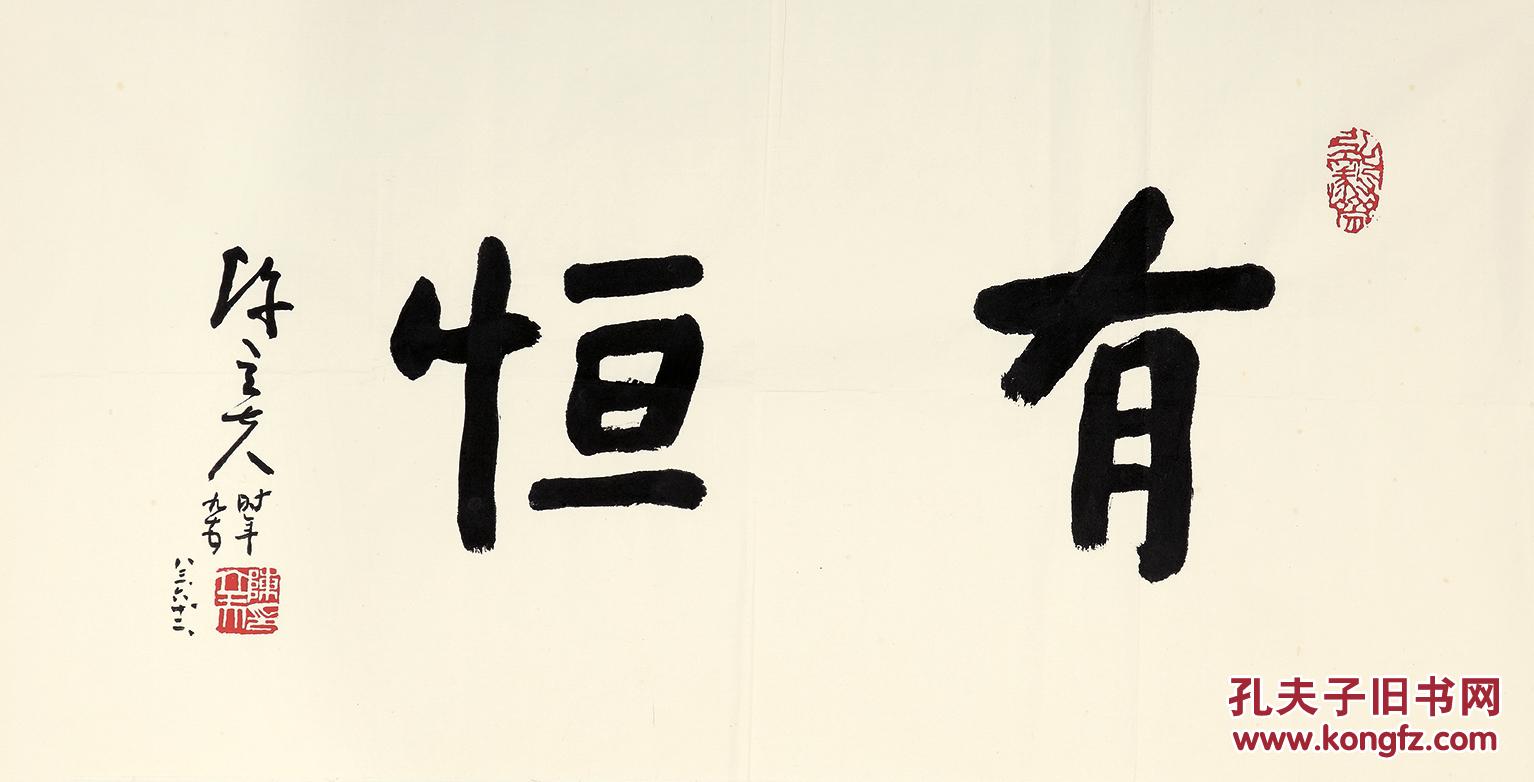 有恒
陳立夫
时年
九十五
八三、六、十二、
陳立夫印
孔夫子旧书网
www.kongfz.com